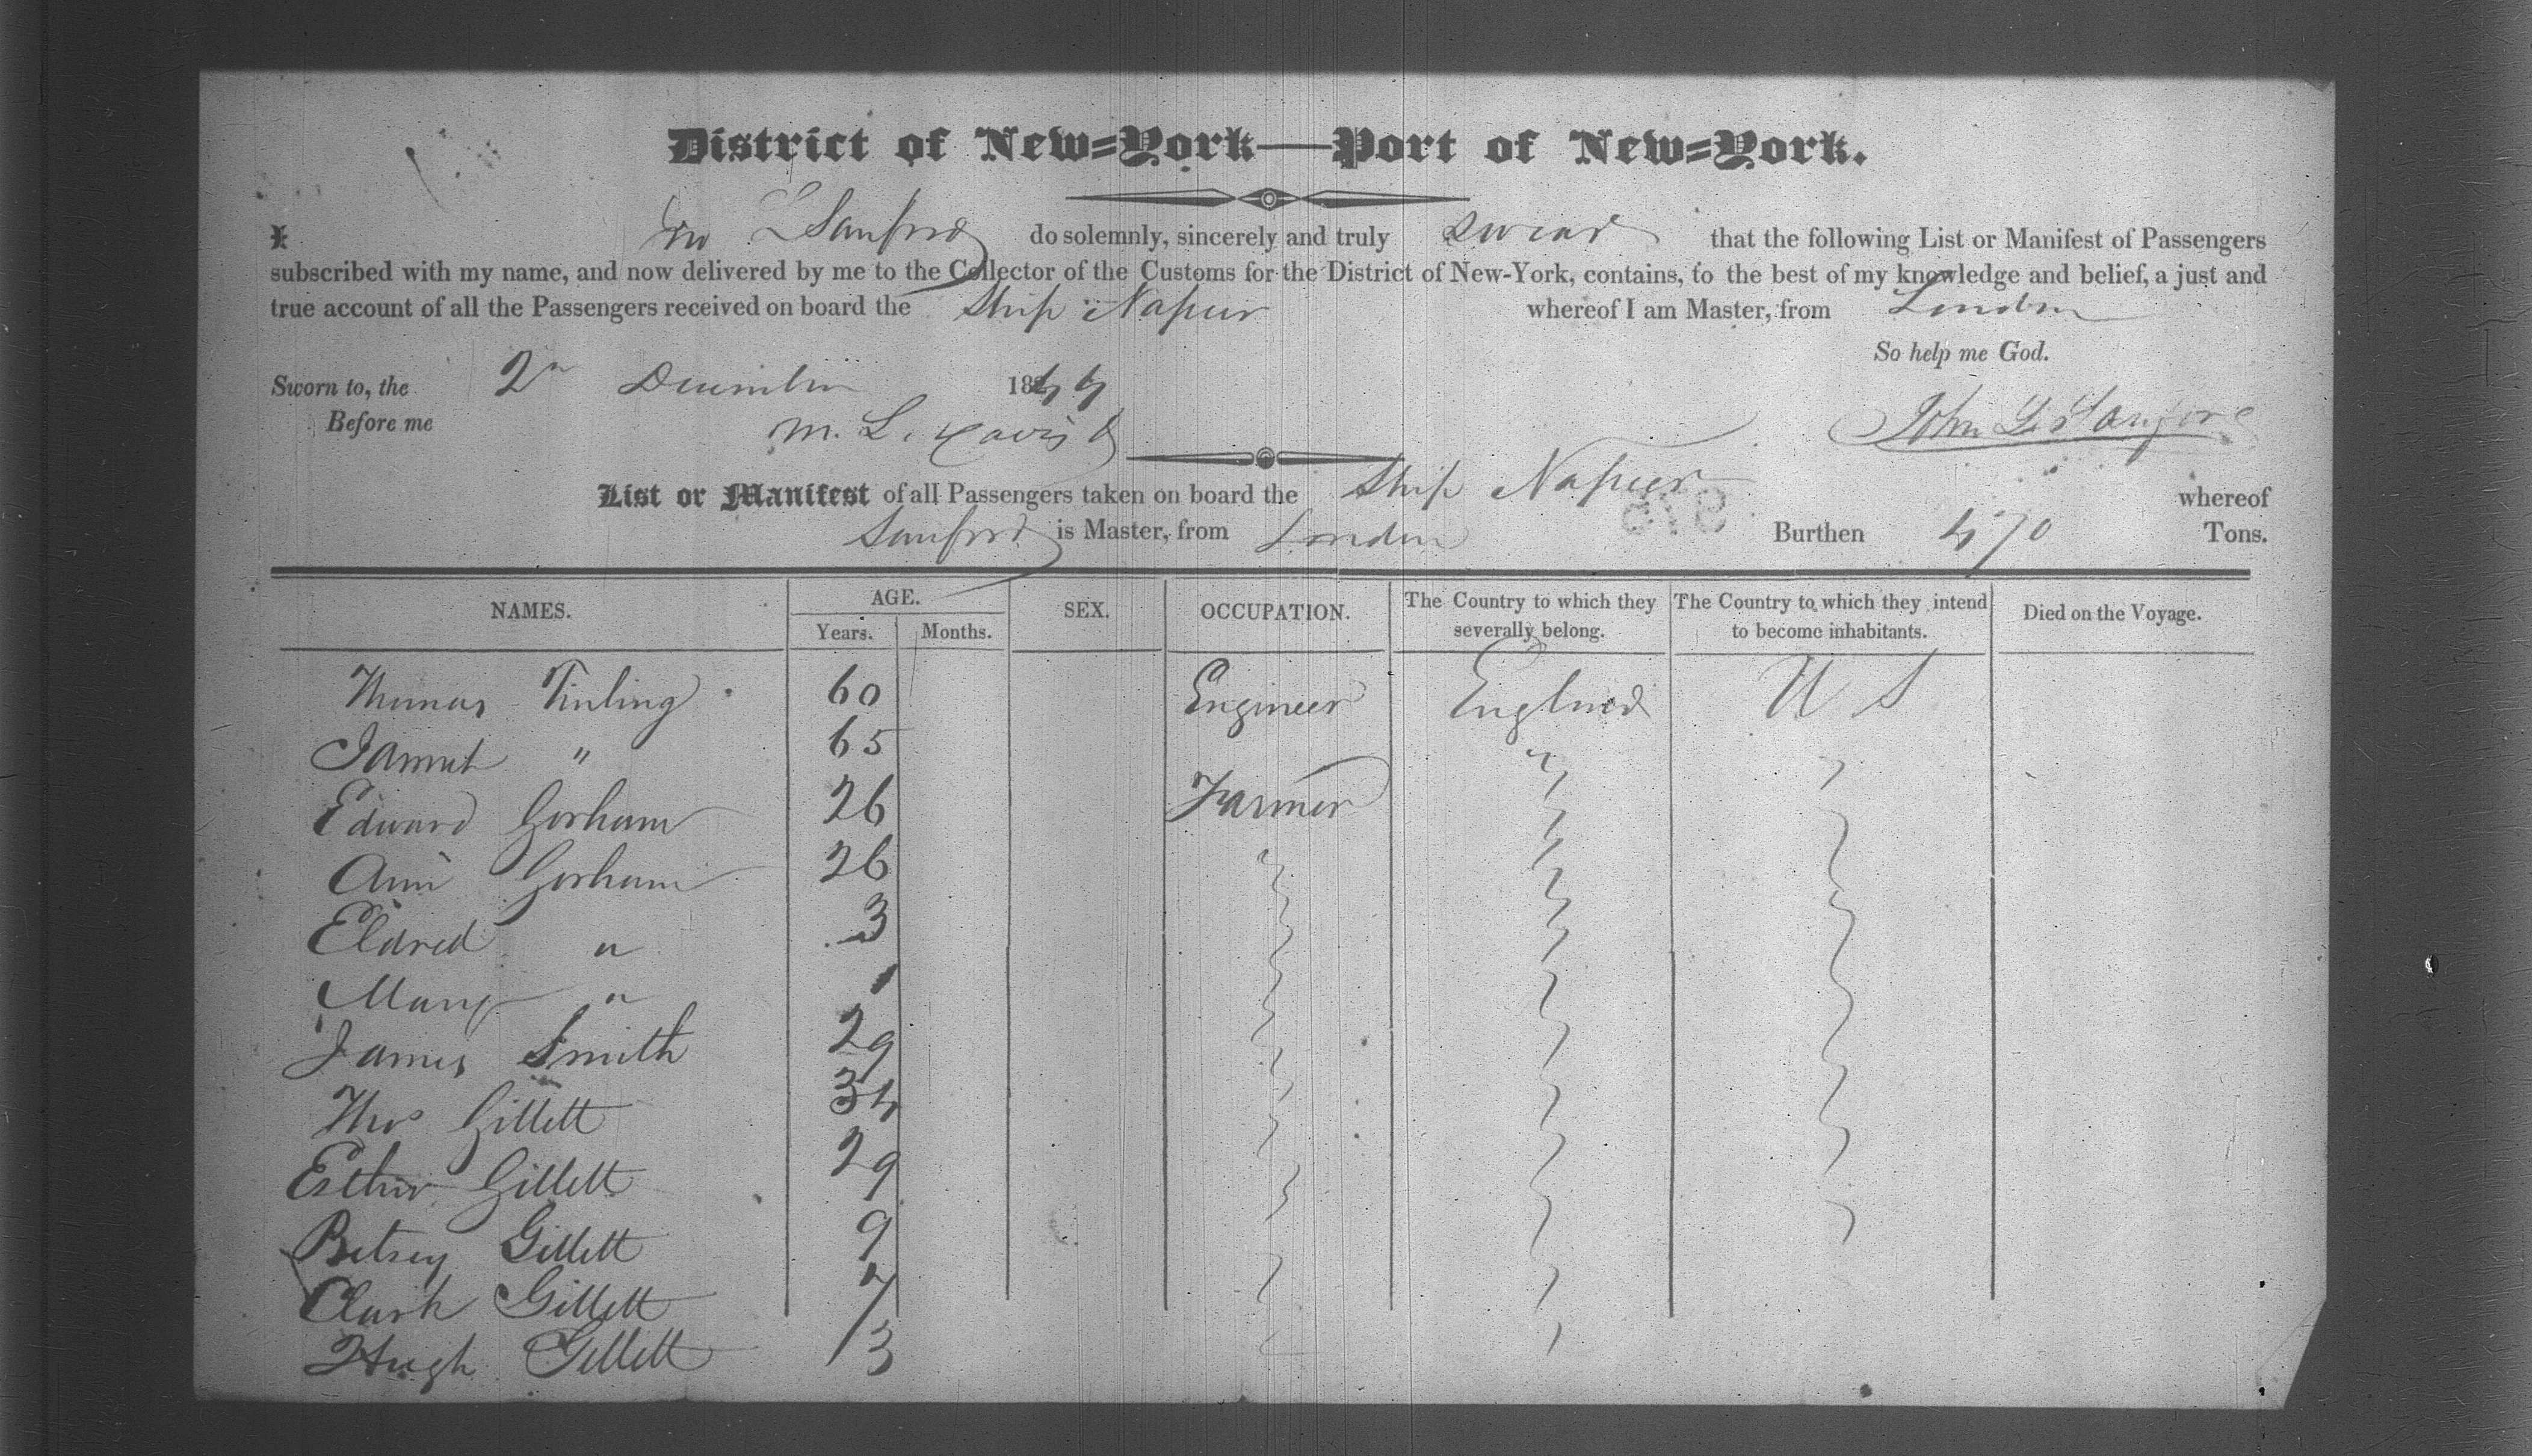 District of New=York—Port of New=York.
I Jno L Sanford do solemnly, sincerely and truly swear that the following List or Manifest of Passengers
subscribed with my name, and now delivered by me to the Collector of the Customs for the District of New-York, contains, to the best of my knowledge and belief, a just and
true account of all the Passengers received on board the Ship Napier whereof I am Master, from London
So help me God.
Sworn to, the 2n December 1844
Before me M. L. Davis John L. Sanford
List or Manifest of all Passengers taken on board the Ship Napier whereof
Sanford is Master, from London Burthen 470 Tons.
NAMES. AGE. SEX. OCCUPATION. The Country to which they severally belong. The Country to which they intend to become inhabitants. Died on the Voyage.
Years. Months.
Thomas Tinling 60 Engineer England U S
" 65 "
Edward Gorham 26 Farmer "
Ann Gorham 26 " "
Eldred " 3 " "
Mary " 1 " "
James Smith 29 " "
Thos Gillett 34 " "
Esther Gillett 29 " "
Betsey Gillett 9 " "
Clark Gillett 7 " "
Hugh Gillett 13 " "